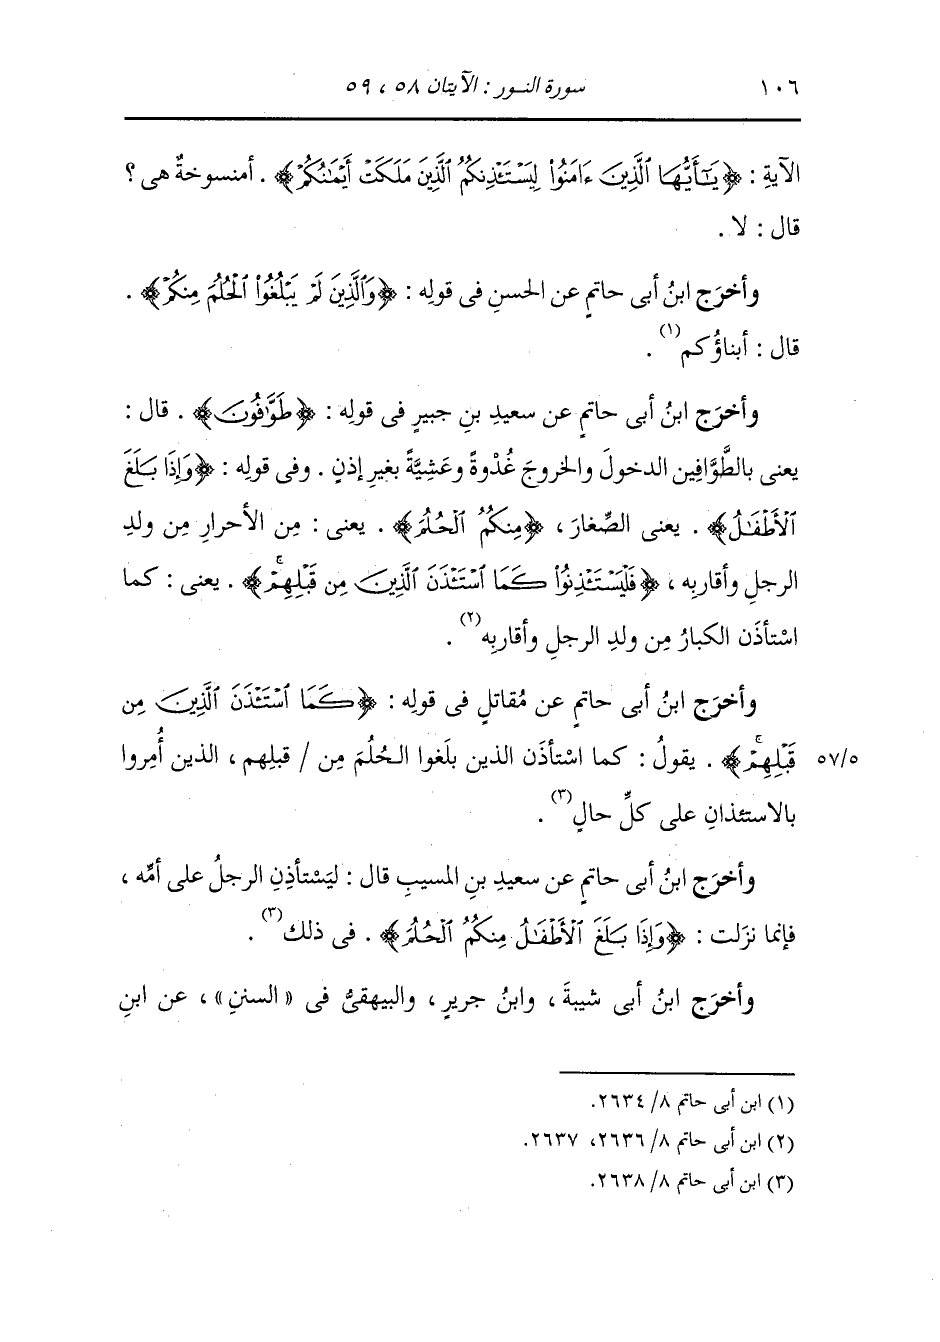 ١٠٦ سورة النور : الآيتان ٥٨ ، ٥٩
الآيةِ : ﴿يَـٰٓأَيُّهَا ٱلَّذِينَ ءَامَنُوا۟ لِيَسْتَـْٔذِنكُمُ ٱلَّذِينَ مَلَكَتْ أَيْمَـٰنُكُمْ﴾ . أمنسوخةٌ هى ؟
قال : لا .
وأخرَج ابنُ أبى حاتمٍ عن الحسنِ فى قولِه : ﴿وَٱلَّذِينَ لَمْ يَبْلُغُوا۟ ٱلْحُلُمَ مِنكُمْ﴾ .
قال : أبناؤُكم(١) .
وأخرَج ابنُ أبى حاتمٍ عن سعيدِ بنِ جبيرٍ فى قولِه : ﴿طَوَّٰفُونَ﴾ . قال :
يعنى بالطَّوَّافِين الدخولَ والخروجَ غُدْوةً وعَشِيَّةً بغيرِ إذنٍ . وفى قولِه : ﴿وَإِذَا بَلَغَ
ٱلْأَطْفَـٰلُ﴾ . يعنى الصِّغارَ ، ﴿مِنكُمُ ٱلْحُلُمَ﴾ . يعنى : مِن الأحرارِ مِن ولدِ
الرجلِ وأقاربِه ، ﴿فَلْيَسْتَـْٔذِنُوا۟ كَمَا ٱسْتَـْٔذَنَ ٱلَّذِينَ مِن قَبْلِهِمْۚ﴾ . يعنى : كما
اسْتأذَن الكبارُ مِن ولدِ الرجلِ وأقاربِه(٢) .
وأخرَج ابنُ أبى حاتمٍ عن مُقاتلٍ فى قولِه : ﴿كَمَا ٱسْتَـْٔذَنَ ٱلَّذِينَ مِن
قَبْلِهِمْۚ﴾ . يقولُ : كما اسْتأذَن الذين بلَغوا الحُلُمَ مِن / قبلِهم ، الذين أُمِروا ٥٧/٥
بالاستئذانِ على كلِّ حالٍ(٣) .
وأخرَج ابنُ أبى حاتمٍ عن سعيدِ بنِ المسيبِ قال : ليَسْتأذِنِ الرجلُ على أمِّه ،
فإنما نزَلت : ﴿وَإِذَا بَلَغَ ٱلْأَطْفَـٰلُ مِنكُمُ ٱلْحُلُمَ﴾ . فى ذلك(٣) .
وأخرَج ابنُ أبى شيبةَ ، وابنُ جريرٍ ، والبيهقىُّ فى « السننِ » ، عن ابنِ
(١) ابن أبى حاتم ٨/ ٢٦٣٤.
(٢) ابن أبى حاتم ٨/ ٢٦٣٦، ٢٦٣٧.
(٣) ابن أبى حاتم ٨/ ٢٦٣٨.